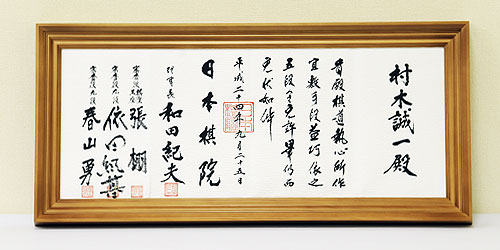 村木誠一殿
貴殿棋道執心所作
宜敷手段益巧依之
五段令免許畢仍而
免状如件
平成二十四年九月二十五日
日本棋院
理事長 和田紀夫
審査役 棋聖 張栩
審査役九段 依田紀基
審査役九段 春山勇